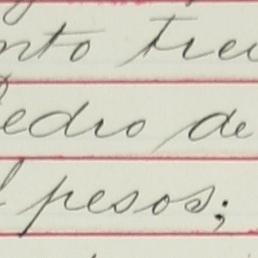 nto trei
Pedro de
l pesos;